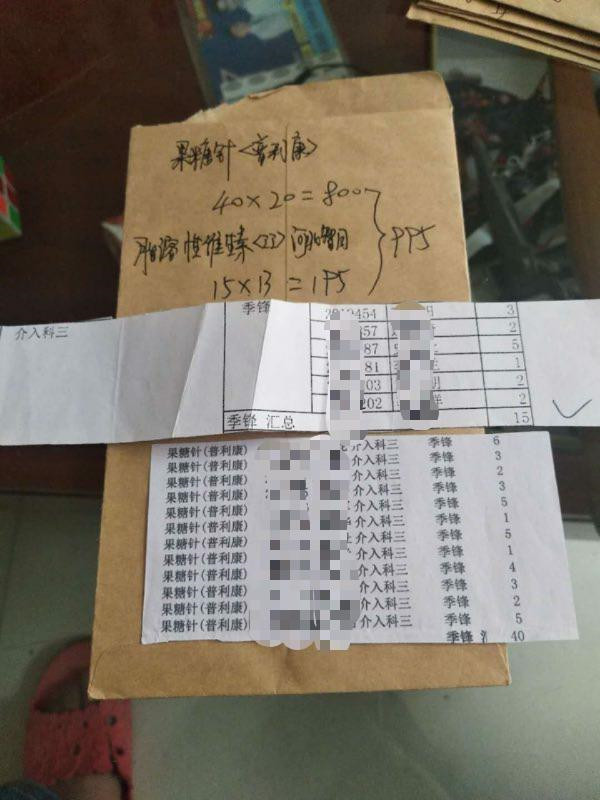 果糖针<普利康>
40×20=800
脂溶性维生素<II>
15×13=195
995
介入科三
季锋
454 3
457 2
87 5
81 1
203 2
202 2
季锋 汇总 15
果糖针(普利康) 介入科三 季锋 6
果糖针(普利康) 介入科三 季锋 3
果糖针(普利康) 介入科三 季锋 2
果糖针(普利康) 介入科三 季锋 3
果糖针(普利康) 介入科三 季锋 5
果糖针(普利康) 介入科三 季锋 1
果糖针(普利康) 介入科三 季锋 5
果糖针(普利康) 介入科三 季锋 1
果糖针(普利康) 介入科三 季锋 4
果糖针(普利康) 介入科三 季锋 3
果糖针(普利康) 介入科三 季锋 2
果糖针(普利康) 介入科三 季锋 5
季锋 40